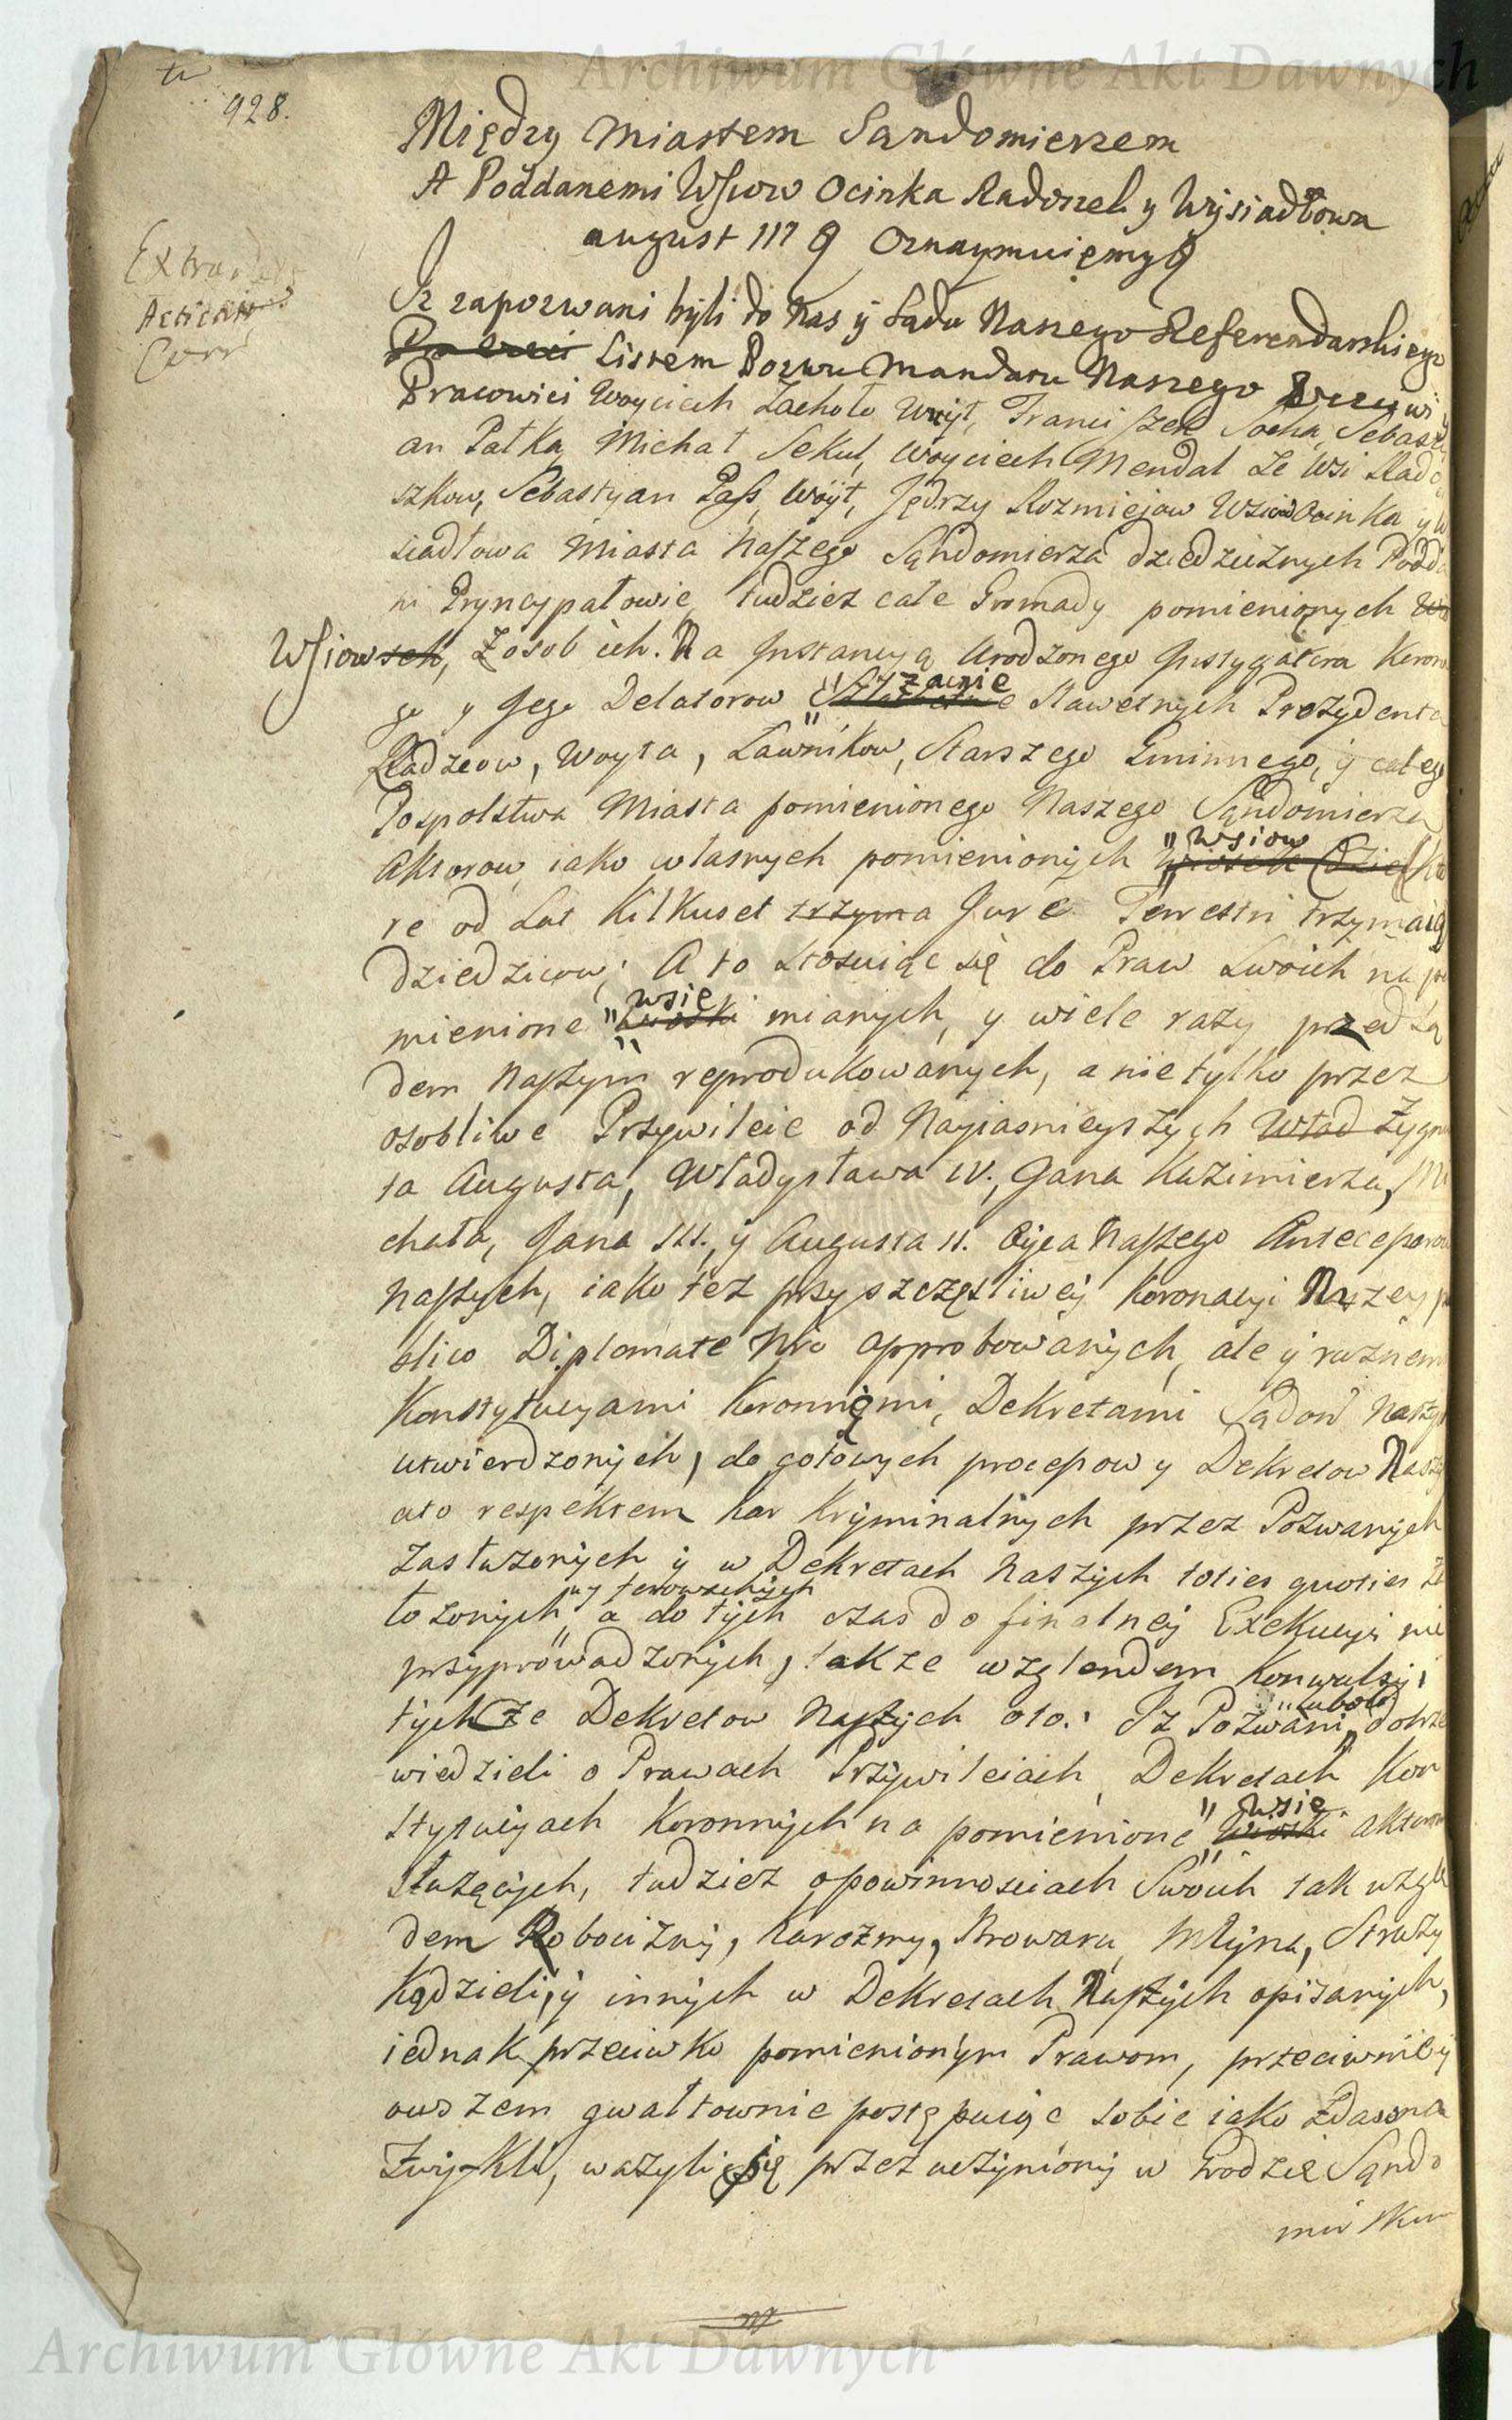 Archiwum Główne Akt Dawnych
928.
Między Miastem Sandomierzem
A Poddanemi Wsiow Ocinka Radoszek y Wysiadłowa
august III Oznaymuięmy
Extrad
Acticat
Corr
Iz zapozwani byli do Nas y Sądu Naszego Referendarskiego
Listem Pozwu Mandatu Naszego
Pracowici Woyciech Zachoło Woyt, Franciszek Socha, Sebasty
an Pałka, Michał Sekuł, Woyciech Mendal ze Wsi Rado
szkow, Sebastyan Pass, Woyt, Jędrzy Rozmiejow Wsiow Ocinka y W
siadłowa Miasta Naszego Sandomierza dziedzicznych Podda
ni Pryncypałowie, tudziesz całe Gromady pomienionych
Wsiow, z osob ich. Na Instancyą Urodzonego Instygatora Koron
go y Jego Delatorow "zacnie Sławetnych Prezydenta
Radzcow, Woyta, Ławnikow, Starszego Gminnego, y całego
Pospolstwa Miasta pomienionego Naszego Sandomierza
Aktorow, iako własnych pomienionych "wsiow (kto
re od Lat Kilkuset trzyma Jure Terrestri trzymaią
dziedzicow; A to stosuiąc się do Praw swoich na po
mienione "wsie mianych, y wiele razy przed Są
dem Naszym reprodukowanych, a nie tylko przez
osobliwe Przywileie od Nayiasnieyszych Wład Zygm
ta Augusta, Władysława IV., Jana Kazimierza, Mi
chała, Jana III., y Augusta II. Oyca Naszego Antecessorow
Naszych, iako też przy szczęsliwey Koronacyi Naszey p
blico Diplomate Nro approbowanych, ale y rożnem
Konstytucyami Koronnęmi, Dekretami Sądow Naszy
utwierdzonych, do gotowych processow y Dekretow Naszy
ato respektem kar Kryminalnych przez Pozwanych
zasłużonych y w Dekretach Naszych toties quoties za
łożonych a do tych czas do finalney Exekucyi nie
przyprowadzonych, także względem Konwulsyi
tychże Dekretow Naszych oto: Iz Pozwani "lubo dobrze
wiedzieli o Prawach Przywileiach, Dekretach Kon
stytucyach Koronnych na pomienione "wsie aktorom
służących, tudziesz o powinnosciach Swoich tak wzglę
dem Robocizny, karczmy, Browaru, Młyna, Straży
Kądzieli, y innych w Dekretach Naszych opisanych,
iednak przeciwko pomienionym Prawom, przeciwnie y
owszem gwałtownie postępuiąc sobie iako zdawna
zwykli, ważyli się przez uczyniony w Grodzie Sando
mirskim
Archiwum Główne Akt Dawnych